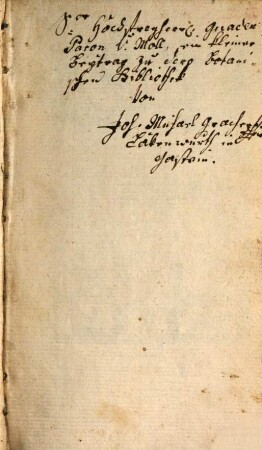 Sr Hochfreyherrl: Gnaden
Baron v: Moll, ein kleiner
Beytrag zu dero botani-
schen Bibliothek
Von
Joh. Michael
in
Gastein.